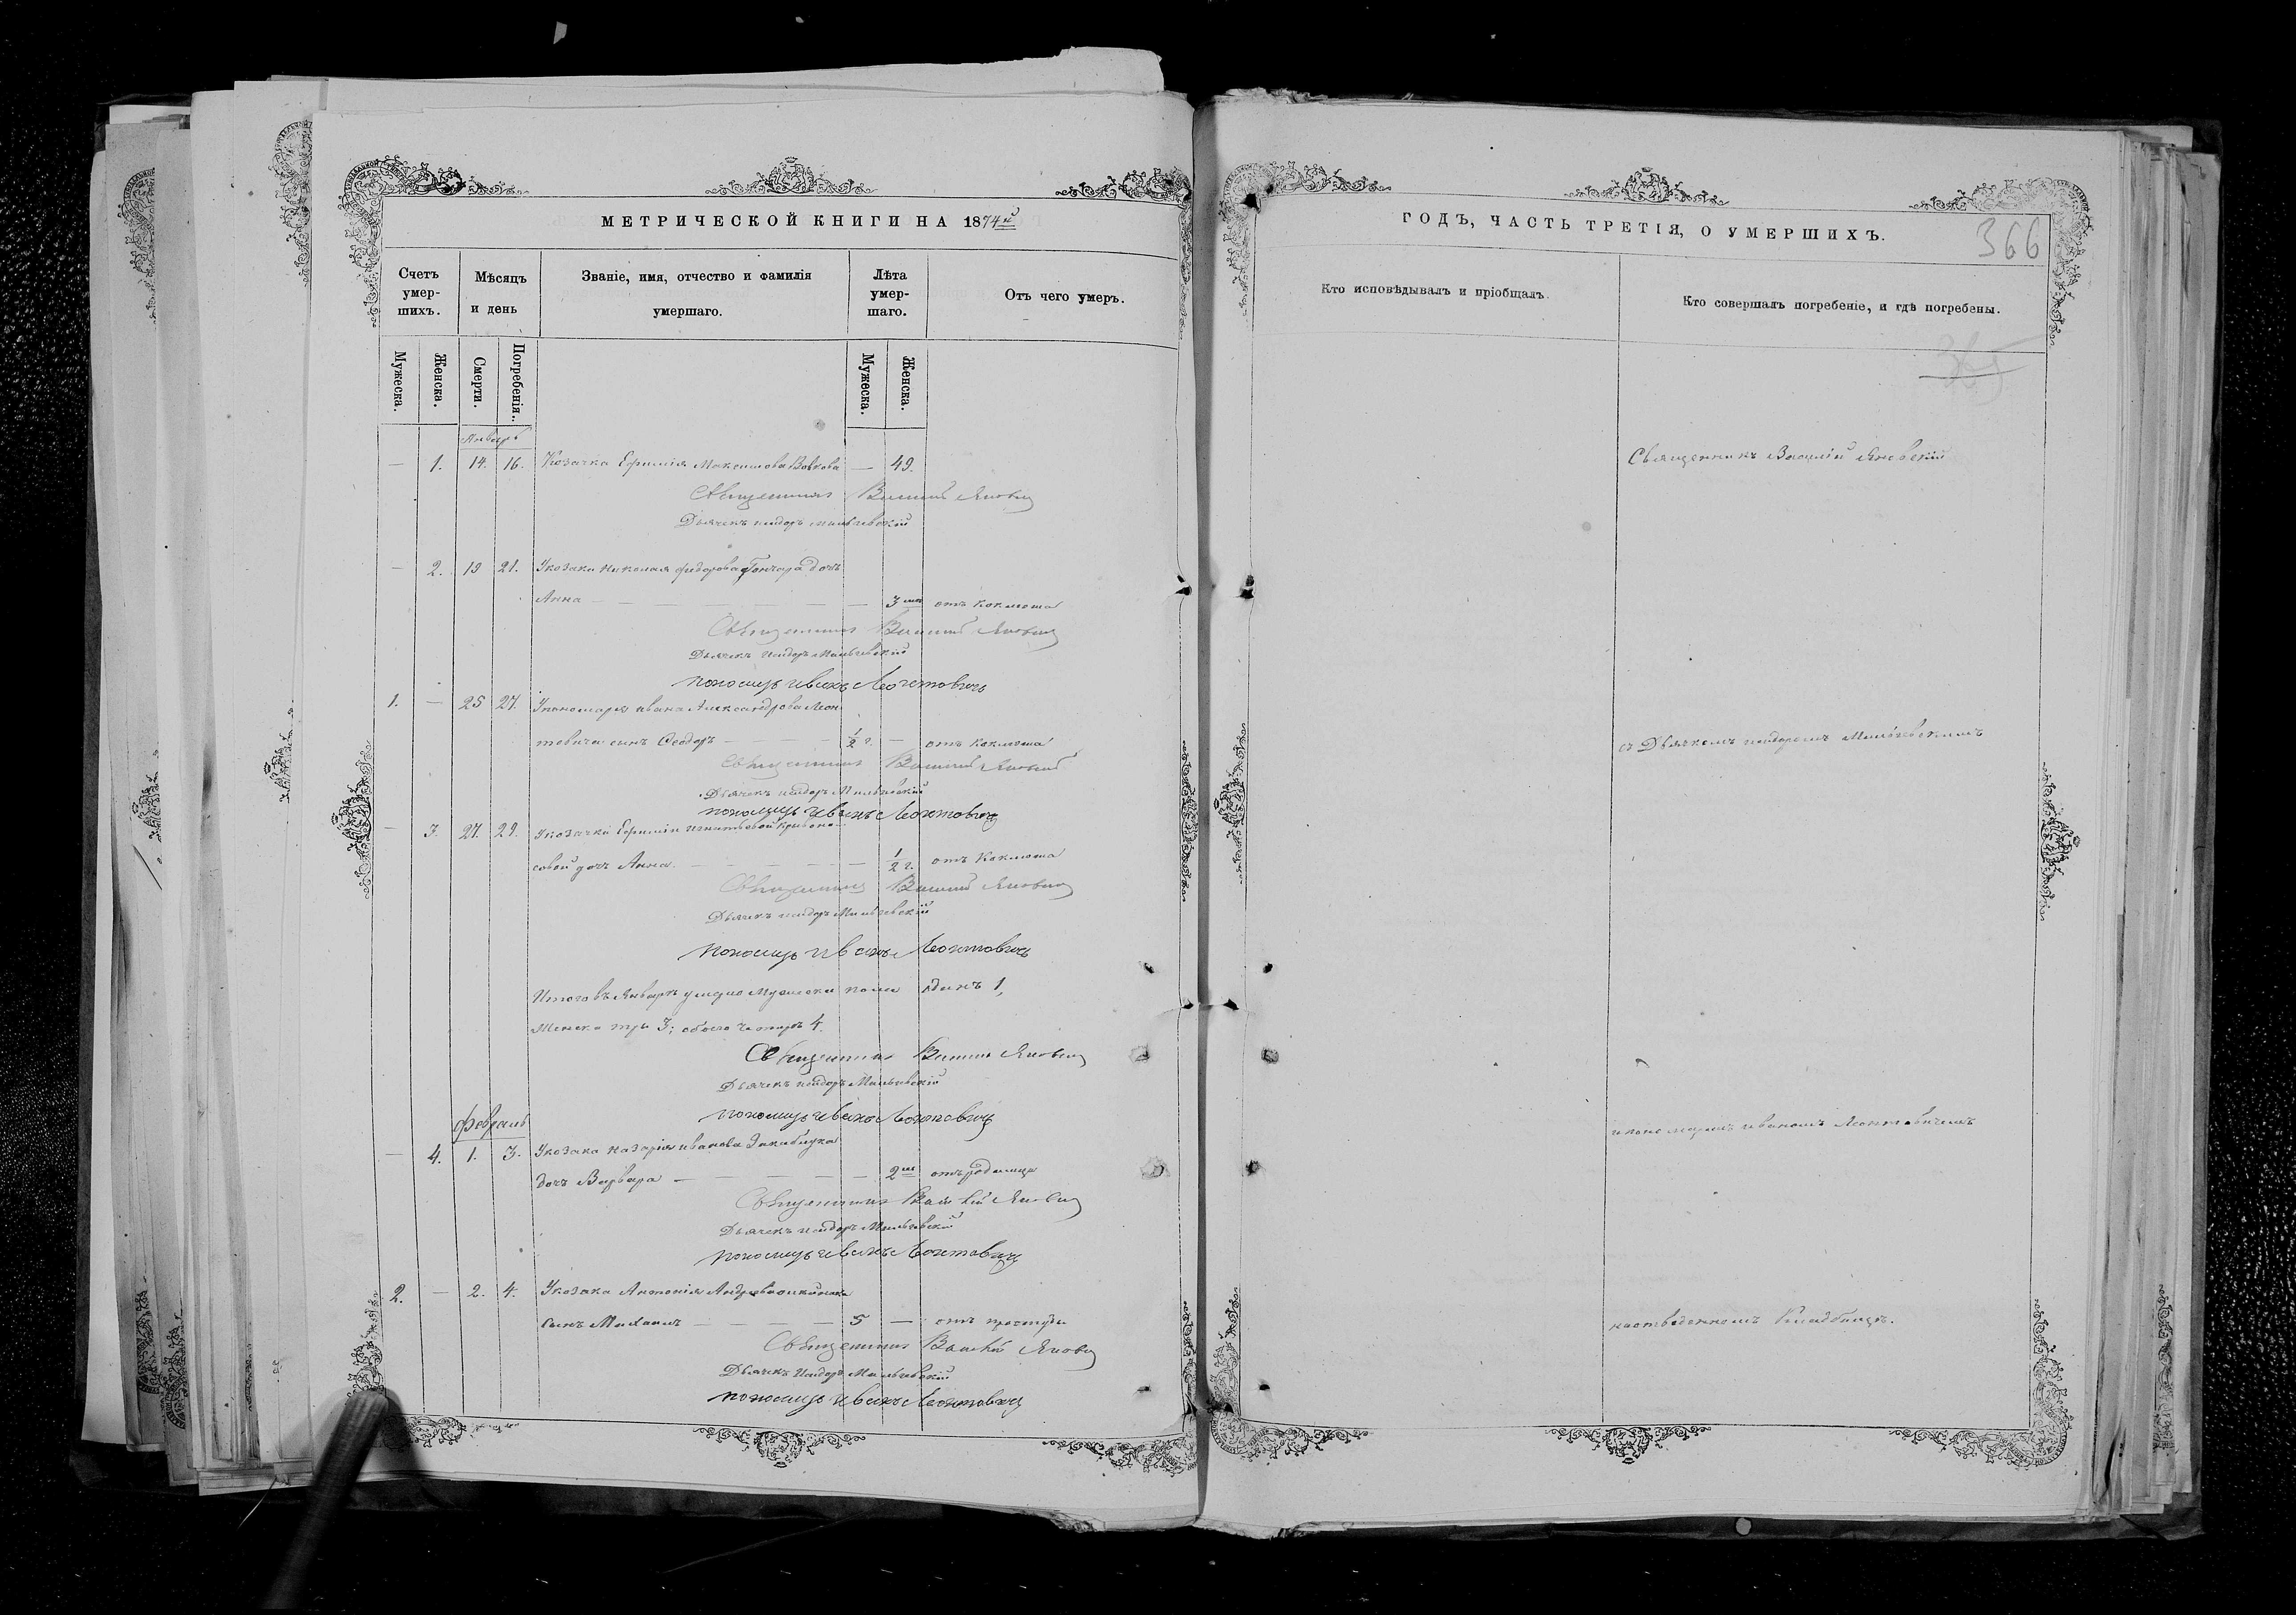 МЕТРИЧЕСКОЙ КНИГИ НА 1874й
Счетъ умер-шихъ.
Мѣсяцъ и день
Званіе, имя, отчество и фамилія умершаго.
Лѣта умер-шаго.
Отъ чего умеръ.
Мужеска.
Женска.
Смерти.
Погребенія.
Мужеска.
Женска.
Январь
— 1. 14. 16. Козачка Ефимія Максимова Вовкова — 49.
Священникъ Василій Яновскій
Дьячекъ Исидоръ Мильчевскій
— 2. 19 21. У козака Николая Федорова Гончара дочь
Анна — 3 отъ коклюша
Священникъ Василій Яновскій
Дьячекъ Исидоръ Мильчевскій
пономарь Иванъ Леонтовичъ
1. — 25 27. У пономаря Ивана Александрова Леон
товича сынъ Феодоръ — 1/2 г. — отъ коклюша
Священникъ Василій Яновскій
Дьячекъ Исидоръ Мильчевскій
пономарь Иванъ Леонтовичъ
— 3. 27. 29. У козачки Ефиміи Игнатьевой
совой дочь Анна — 1/2 г. отъ коклюша
Священникъ Василій Яновскій
Дьячекъ Исидоръ Мильчевскій
пономарь Иванъ Леонтовичъ
Итого въ Январѣ умерло Мужеска пола одинъ 1,
Женска три 3; обоего четыре 4.
Священникъ Василій Яновскій
Дьячекъ Исидоръ Мильчевскій
пономарь Иванъ Леонтовичъ
Февраль
— 4. 1. 3. У козака Назарія Иванова
дочь Варвара — 2 отъ родимца
Священникъ Василій Яновскій
Дьячекъ Исидоръ Мильчевскій
пономарь Иванъ Леонтовичъ
2. — 2. 4. У козака Антонія
сынъ Михаилъ — 5 — отъ простуды
Священникъ Василій Яновскій
Дьячекъ Исидоръ Мильчевскій
пономарь Иванъ Леонтовичъ
ГОДЪ, ЧАСТЬ ТРЕТІЯ, О УМЕРШИХЪ.
366
Кто исповѣдывалъ и пріобщалъ.
Кто совершалъ погребеніе, и гдѣ погребены.
365
Священникъ Василій Яновскій
съ Дьячкомъ Исидоромъ Мильчевскимъ
и пономаремъ Иваномъ Леонтовичемъ
на отведенномъ Кладбищѣ.